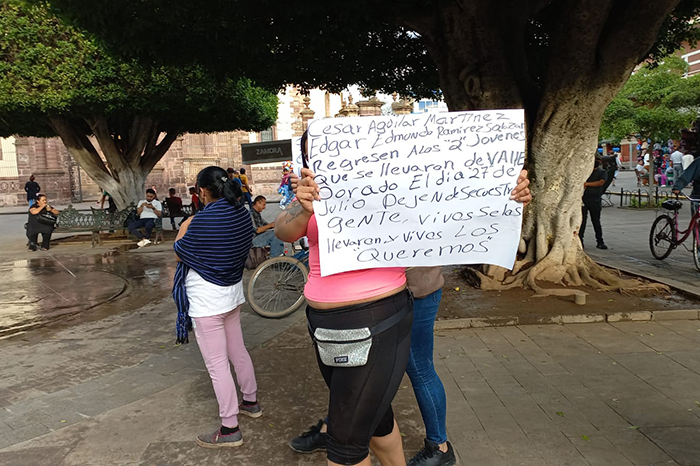 ZAMORA
Cesar Aguilar Martinez
Edgar Edmundo Ramirez Salazar
Regresen A los "2" Jovenes
Que se llevaron de VALLE
Dorado El dia 27 de
Julio Dejen de Secuestrar
gente, vivos se los
llevaron y vivos Los
Queremos"
PINK